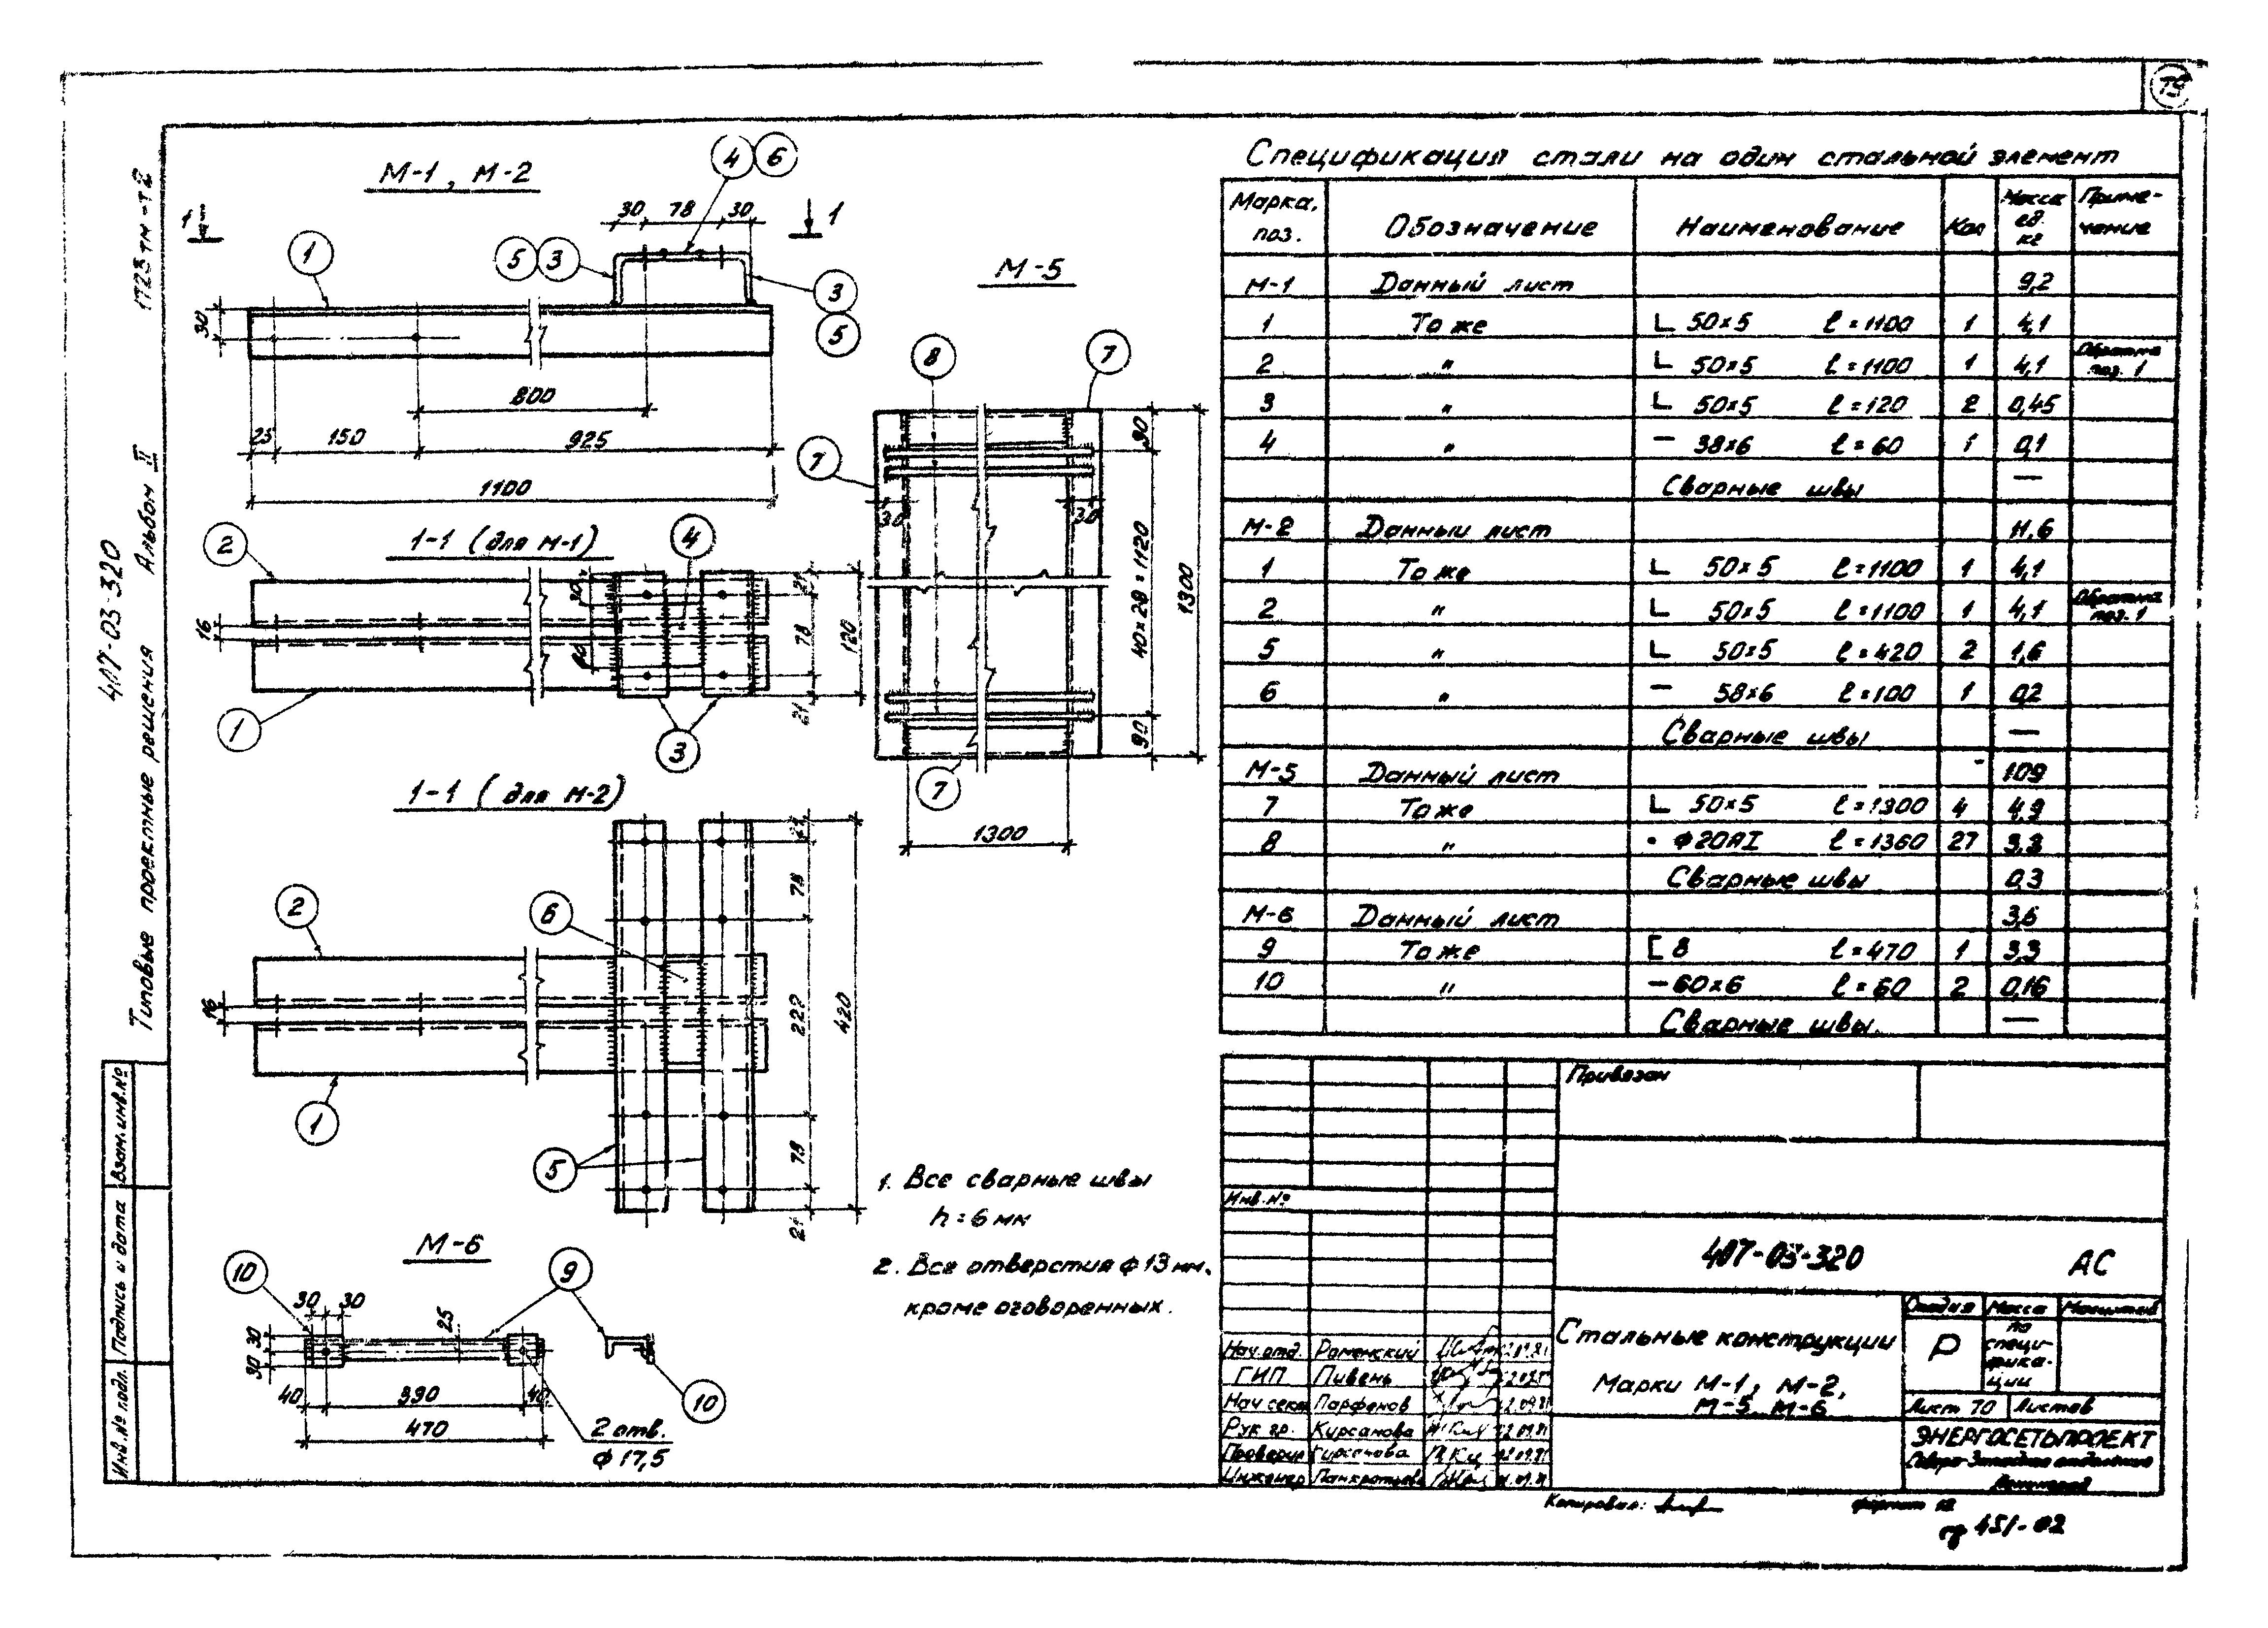 1723тм-т2
Альбом II
407-03-320
Типовые проектные решения
Взам.инв.№
Подпись и дата
Инв.№ подл.
М-1, М-2
4 6
30 78 30
1 1
1
5 3
3
5
30
800
25 150 925
1100
1-1 (для М-1)
2
4
16
30
21
78
120
21
1
3
1-1 (для М-2)
2
6
21
78
222
420
78
21
16
1
5
М-5
8
7
7
30 30
90
40×28=1120
1300
90
7
1300
М-6
10
9
30 30
30
30
25
40 390 40
470
2 отв.
ф17,5
10
1. Все сварные швы
h=6 мм
2. Все отверстия ф13мм,
кроме оговоренных.
Спецификация стали на один стальной элемент
Марка, поз. Обозначение Наименование Кол Масса ед. кг Приме-чание
М-1 Данный лист 9,2
1 То же L 50×5 ℓ=1100 1 4,1
2 " L 50×5 ℓ=1100 1 4,1 Обратна поз. 1
3 " L 50×5 ℓ=120 2 0,45
4 " – 38×6 ℓ=60 1 0,1
Сварные швы —
М-2 Данный лист 11,6
1 То же L 50×5 ℓ=1100 1 4,1
2 " L 50×5 ℓ=1100 1 4,1 Обратна поз. 1
5 " L 50×5 ℓ=420 2 1,6
6 " – 58×6 ℓ=100 1 0,2
Сварные швы —
М-5 Данный лист 109
7 То же L 50×5 ℓ=1300 4 4,9
8 " • Ф20АI ℓ=1360 27 3,3
Сварные швы 0,3
М-6 Данный лист 3,6
9 То же [ 8 ℓ=470 1 3,3
10 " – 60×6 ℓ=60 2 0,16
Сварные швы. —
Привязан
Инв.№
407-03-320 АС
Нач.отд. Роменский
ГИП Пивень
Нач сект Парфенов
Рук гр. Кирсанова
Проверил Кирсанова
Инженер Панкратьева
Стальные конструкции
Марки М-1, М-2,
М-5, М-6
Стадия Масса Масштаб
Р по специ-фика-ции
Лист 70 Листов
ЭНЕРГОСЕТЬПРОЕКТ
Северо-Западное отделение
Ленинград
Копировал:
формат 12
451-02